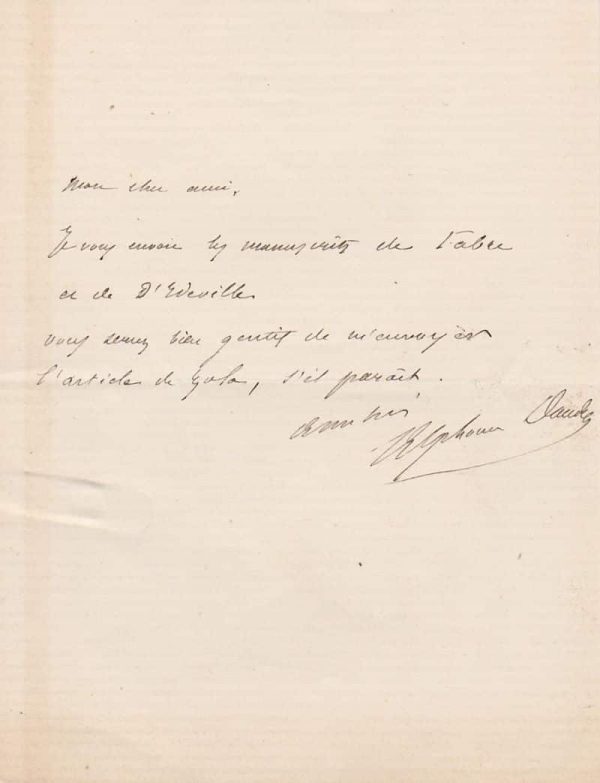 Mon cher ami,
Je vous envoie les manuscrits de Fabre
et de D'Ideville
vous serez bien gentil de m'envoyer
l'article de Zola, s'il paraît.
Amitiés
Alphonse Daudet